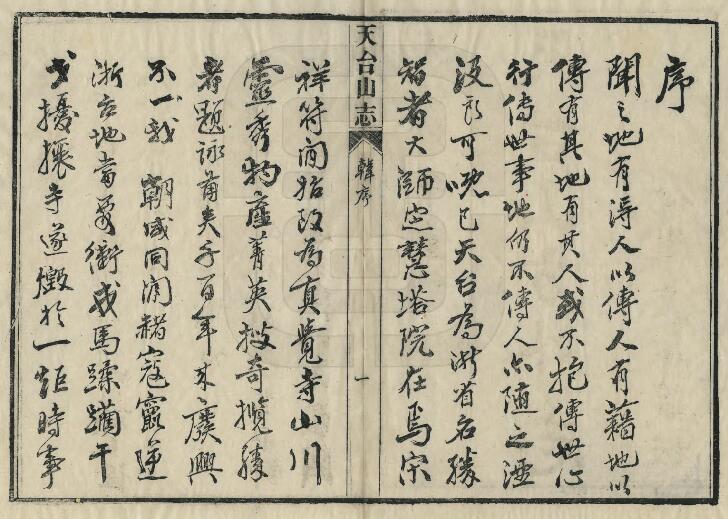 序
聞之地有得人以傳人有藉地以
傳有其地有其人或不抱傳世心
行傳世事地仍不傳人亦随之湮
沒良可嘅已天台為浙省名勝
智者大師定慧塔院在焉宋
天台山志
韓序
一
祥符間始改為真覺寺山川
靈秀物產菁英搜奇攬勝
者題詠莆矣千百年來廢興
不一我朝咸同間赭寇竄逆
浙右地當要衝戎馬蹂躪干
戈擾攘寺遂燬於一炬時事